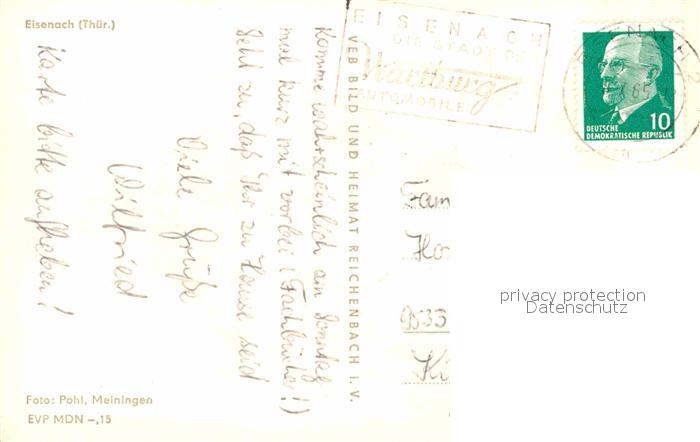 Eisenach (Thür.)
EISENACH
DIE STADT DER
Wartburg
AUTOMOBILE
EISENACH
65
10
DEUTSCHE
DEMOKRATISCHE REPUBLIK
Komme wahrscheinlich am Sonntag
mal kurz mit vorbei (Fachbücher!)
Seht zu, daß Ihr zu Hause seid
Viele Grüße
Wilfried
Karte bitte aufheben!
VEB BILD UND HEIMAT REICHENBACH I. V.
Fam
Ho
9533
Ki
privacy protection
Datenschutz
Foto: Pohl, Meiningen
EVP MDN –,15